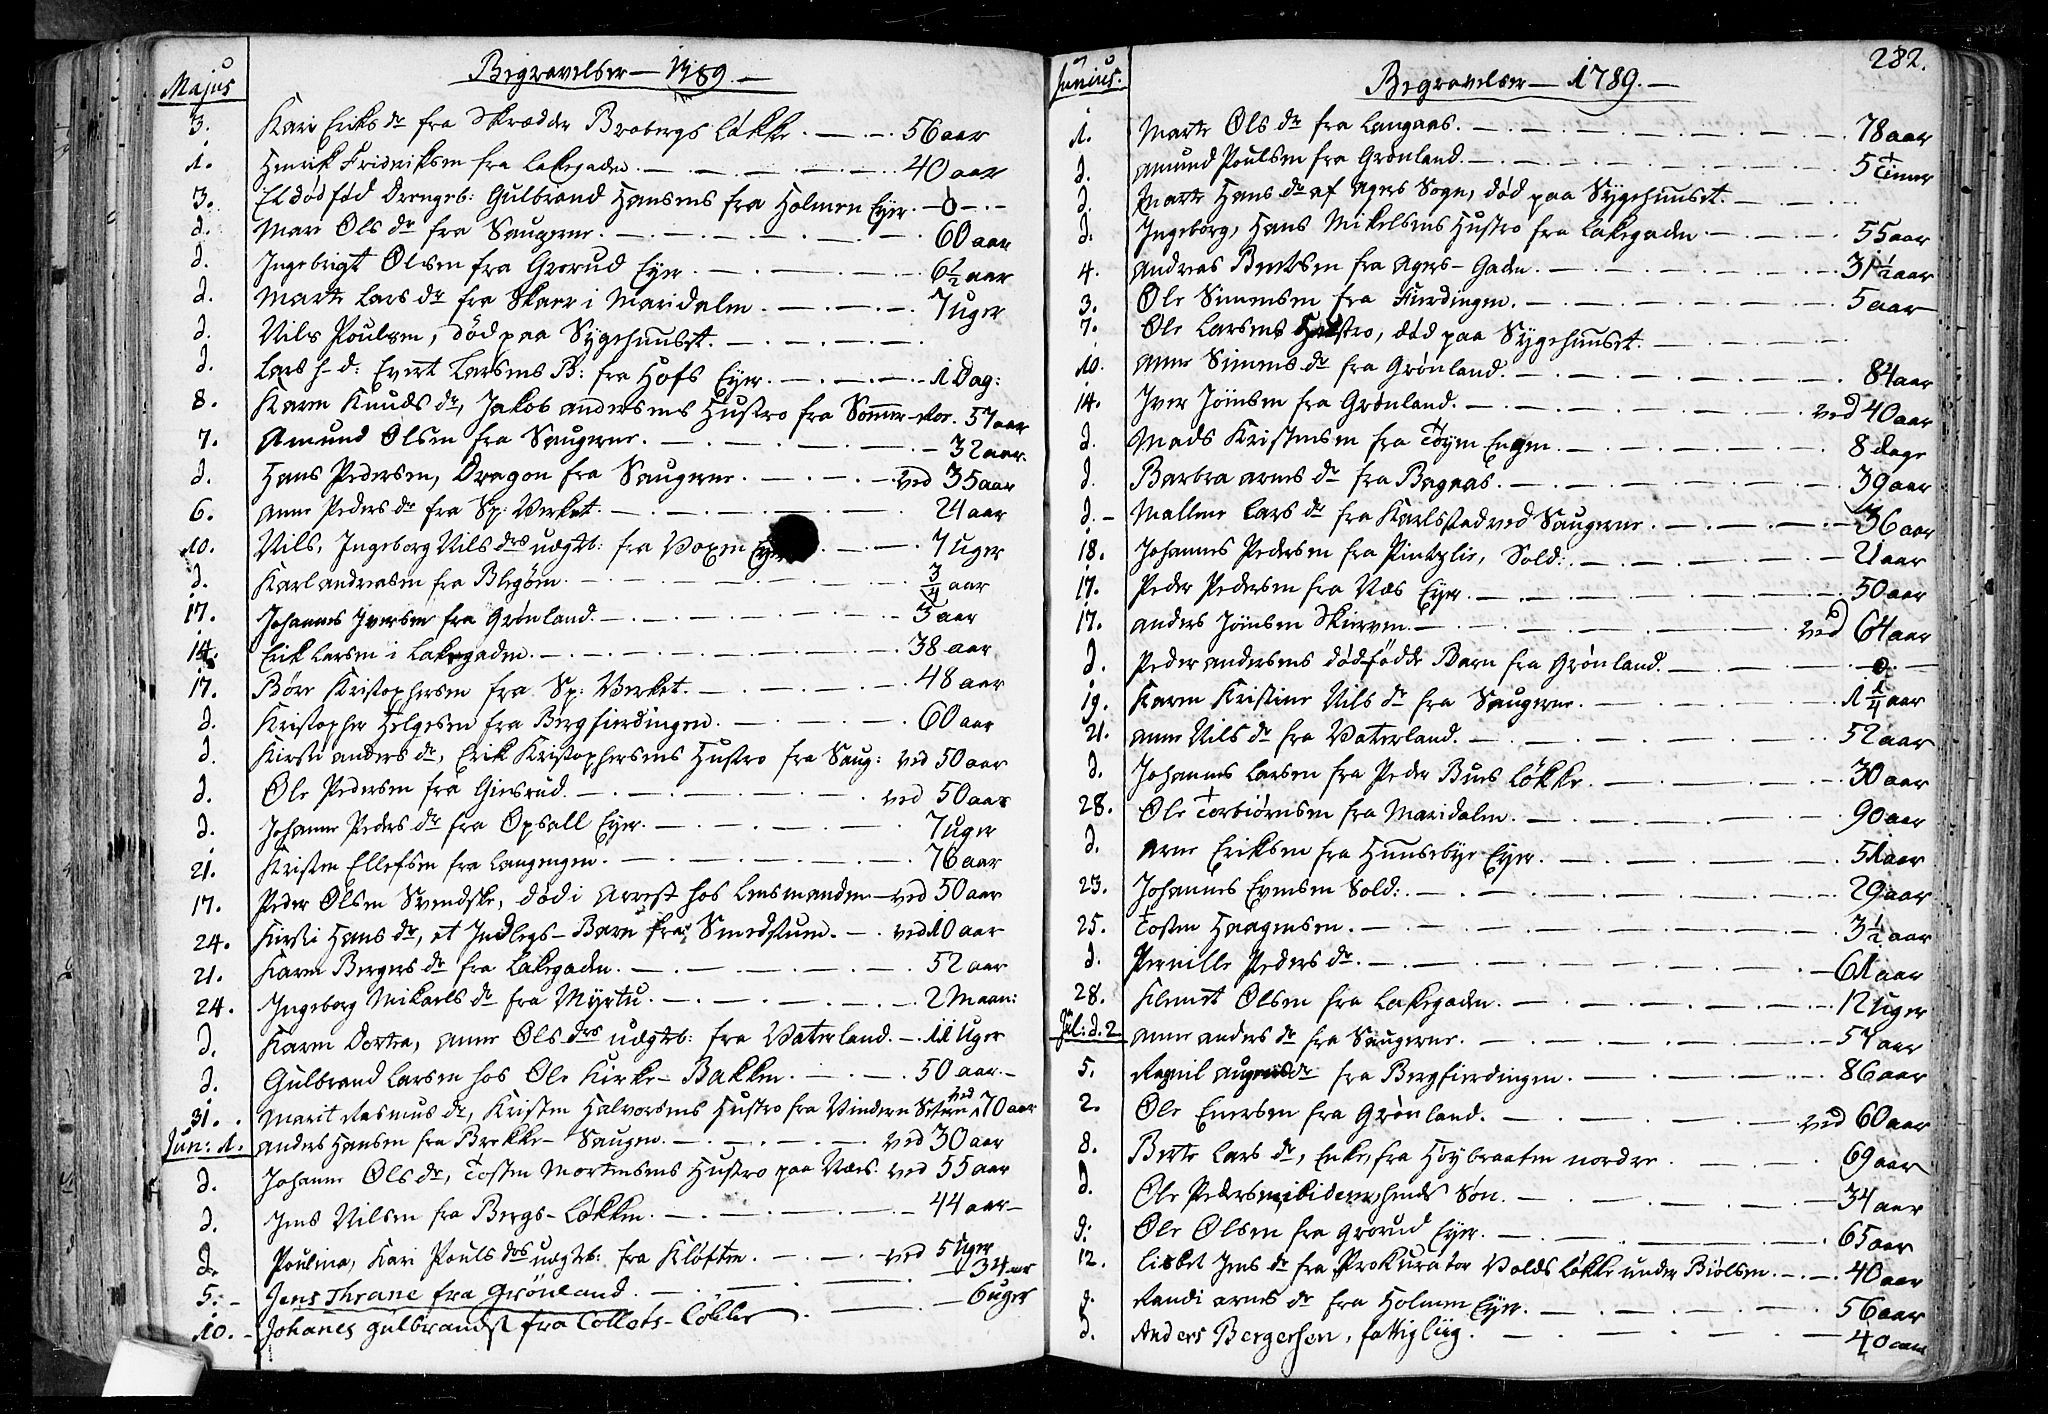 Majus
Begravelser — 1789. —
3. Kari Eriks dr fra Skrædder Brobergs Løkke. — 56 aar
1. Henrik Fridriksen fra Lakegaden. — 40 aar
3. Et dødfød Drengeb: Gulbrand Hansens fra Holmen Eyer. — 0 —
d. Mari Ols dr fra Saugerne. — 60 aar
d. Ingebrigt Olsen fra Grorud Eyer. — 6½ aar
d. Marte Lars dr fra Skaar i Maridalen. — 7 Uger
d. Nils Poulsen, død paa Sygehuuset. —
d. Lars h- d: Evert Larsens B: fra Hofs Eyer. — 1 Dag:
8. Karen Knuds dr, Jakob Andersens Hustro fra 57 aar
7. Amund Olsen fra Saugerne. — 32 aar.
d. Hans Pedersen, Dragon fra Saugerne. — ved 35 aar
6. Anne Peders dr fra Sp: Verket. — 24 aar
10. Nils, Ingeborg Nils drs uægtb: fra Voxen Eyer — 7 Uger
d. Karl Andreasen fra Blegøen. — ¾ aar
17. Johannes Iversen fra Grønland. — 3 aar
14. Erik Larsen i Lakegaden. — 38 aar
17. Børe Kristophersen fra Sp: Verket. — 48 aar
d. Kristopher Helgesen fra Bergfierdingen. — 60 aar
d. Kirsti Anders dr, Erik Kristophersens Hustro fra Saug: ved 50 aar
d. Ole Pedersen fra Giesrud. — ved 50 aar
d. Johanne Peders dr fra Opsall Eyer. — 7 Uger
21. Kristen Ellefsen fra Langengen. — 76 aar
17. Peder Olsen Svendske, død i Arrest hos Lensmanden — ved 50 aar
24. Kirsti Hans dr, et Indlegs-Barn fra Smedstuen. — ved 10 aar
21. Karen Bergers dr fra Lakegaden. — 52 aar
24. Ingeborg Mikaels dr fra Myrtu. — 2 Maan:
d. Karen Dortea, Anne Ols drs uægtb: fra Vaterland. — 11 Uger
d. Gulbrand Larsen hos Ole Kirke-Bakken. — 50 aar. —
31. Marit Rasmus dr, Kristen Halvorsens Hustro fra Vindern ved 70 aar
Jun: 1. Anders Hansen fra Brekke-Saugen. — ved 30 aar
d. Johanne Ols dr, Tosten Mortensens Hustro paa Næs. ved 55 aar
d. Jens Nilsen fra Bergs-Løkken. — 44 aar —
d. Poulina, Kari Pouls drs uægtb: fra Kløften. — ved 5 Uger
5. — Jens Thrane fra Grönland. — 34 aar
10. — Johanes Gulbrands. fra Collets-Lökke. — 6 uger
282.
Junius.
Begravelser — 1789. —
1. Marte Ols dr fra Langaas. — 78 aar
d. Amund Poulsen fra Grønland. — 5 Timer
d. Marte Hans dr af Agers Sogn, død paa Sygehuuset. —
d. Ingeborg, Hans Mikelsens Hustro fra Lakegaden — 55 aar
4. Andreas Bentsen fra Agers-Gaden. — 31½ aar
3. Ole Simensen fra Fierdingen. — 5 aar
7. Ole Larsens Hustro, død paa Sygehuuset. —
10. Anne Simens dr fra Grønland. — 84 aar
14. Iver Jönsen fra Grønland. — ved 40 aar
d. Mads Kristensen fra Tøyen Engen — 8 dage
d. Barbra Arnes dr fra Bagaas. — 39 aar
d. — Mallene Lars dr fra Karlstad ved Saugerne. — 36 aar
18. Johannes Pedersen fra Pintzlie, Sold: — 21 aar
17. Peder Pedersen fra Næs Eyer. — 50 aar
17. Anders Jönsen Skirven. — ved 64 aar
d. Peder Andersens dødfødde Barn fra Grønland. — 0. —
19. Karen Kristine Nils dr fra Saugerne. — 1¼ aar
21. Anne Nils dr fra Vaterland. — 52 aar
d. Johannes Larsen fra Peder Bues Løkke. — 30 aar
28. Ole Torbiørnsen fra Maridalen. — 90 aar
d. Arne Eriksen fra Huusebye Eyer. — 51 aar
23. Johannes Evensen Sold: — 29 aar
25. Tosten Haagensen. — 3½ aar
d. Pernille Peders dr. — 61 aar
28. Klemet Olsen fra Lakegaden. — 12 Uger
Jul: d. 2 Anne Anders dr fra Saugerne. — 57 aar
5. Ragnil dr fra Bergfierdingen. — 86 aar
2. Ole Enersen fra Grønland. — ved 60 aar
8. Berte Lars dr, Enke, fra Høybraaten nordre. — 69 aar
d. Ole Pedersen, ibidem, hendes Søn. — 34 aar
d: Ole Olsen fra Grorud Eyer. — 65 aar
12. Lisbet Jens dr fra Prokurator Volds Løkke under Biølsen. — 40 aar
d. Randi Arnes dr fra Holmen Eyer. — 56 aar
d. Anders Bergersen, fattiglüg. — 40 aar